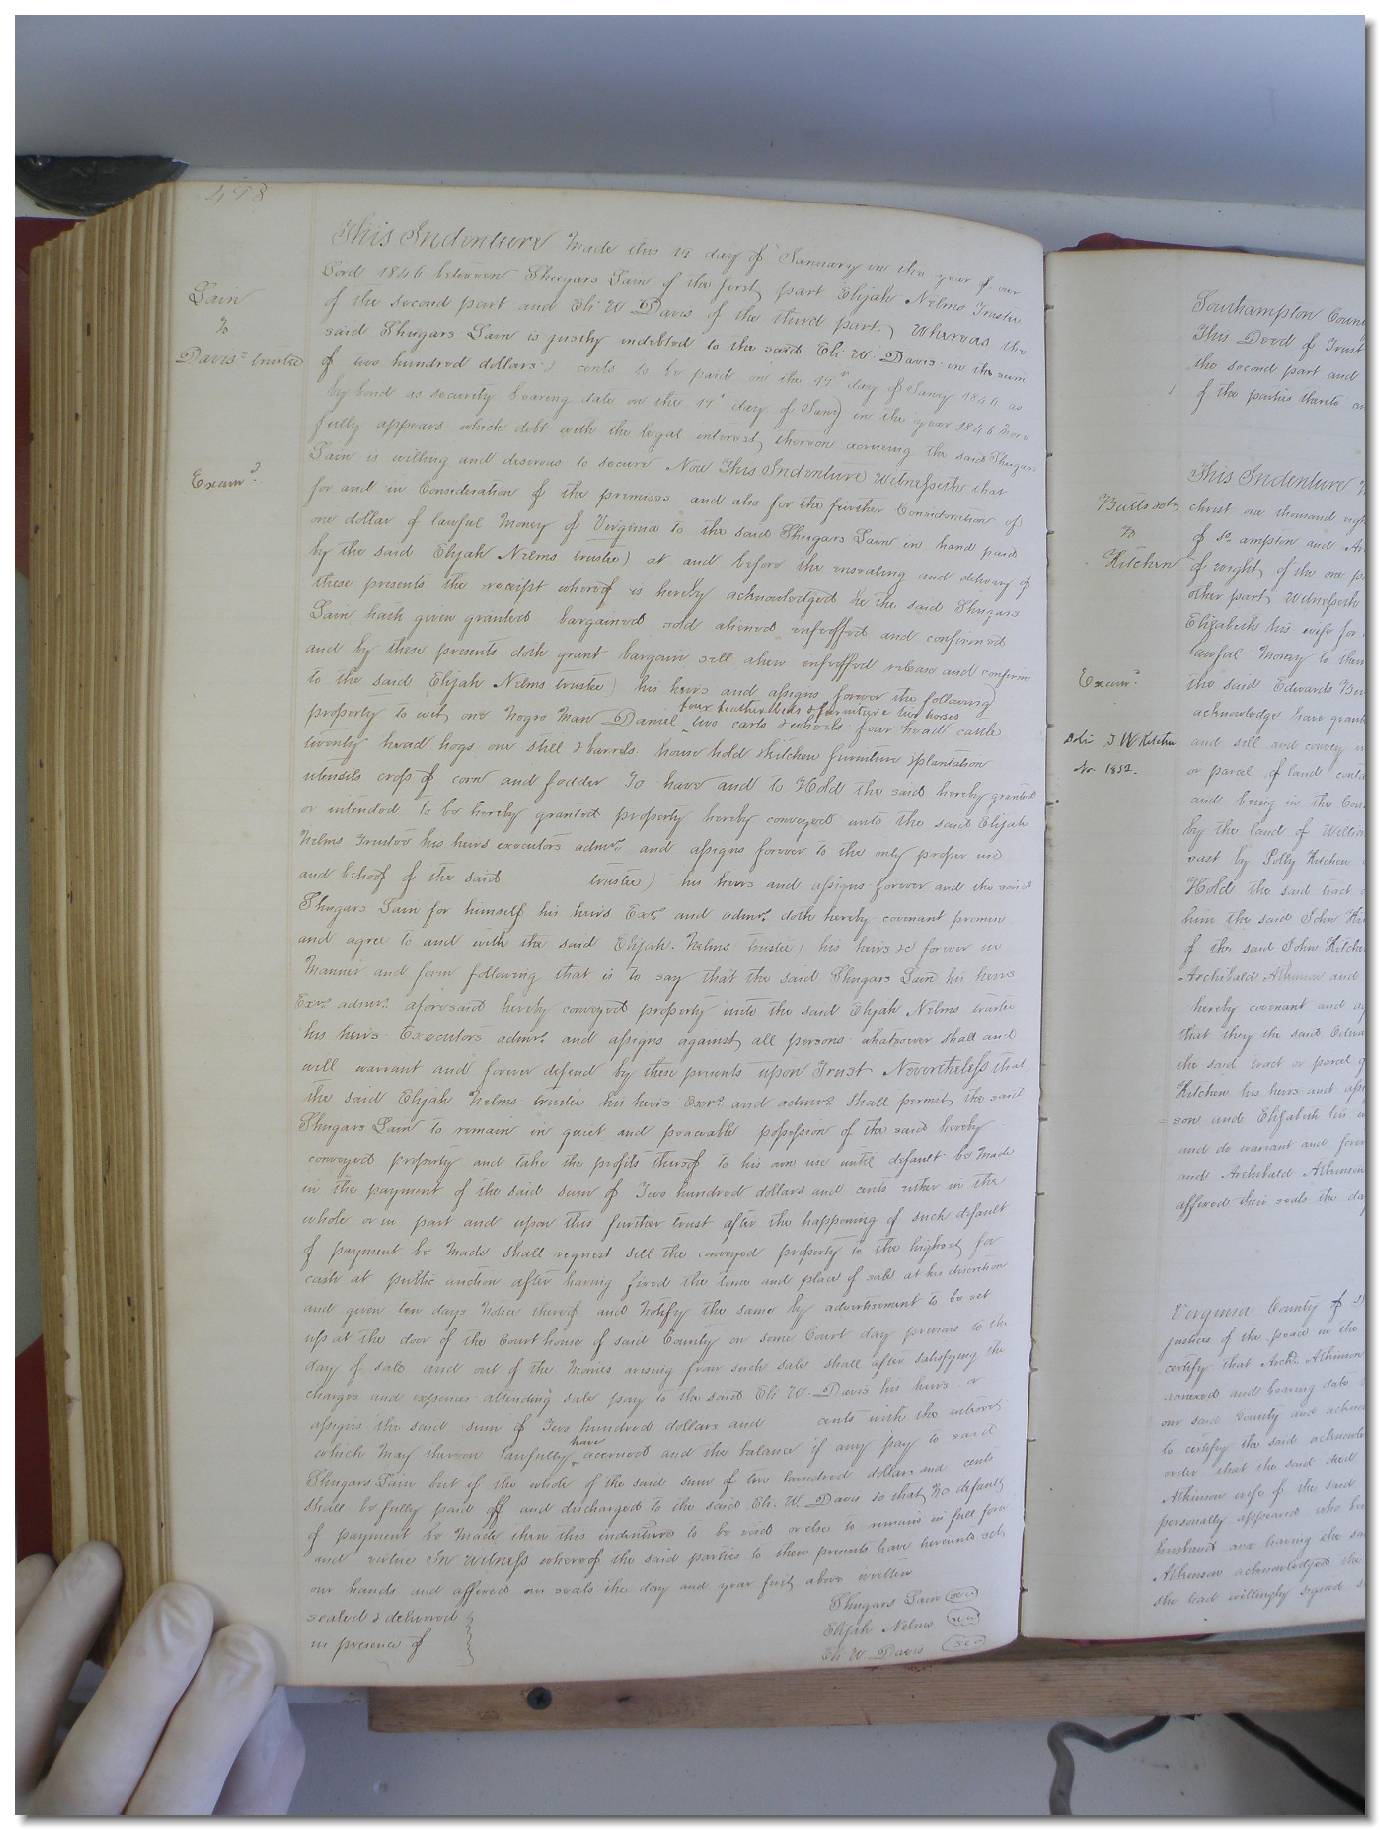 478
Lain
to
Davis' trustee
Exam.d
This Indenture Made this 19 day of January in the year of our
Lord 1846 between Shugars Lain of the first part Elijah Nelms Trustee
of the second part and Eli W Davis of the third part. Whereas the
said Shugars Lain is justly indebted to the said Eli W. Davis in the sum
of two hundred dollars & cents to be paid on the day of Jany 1846 as
by bond as security bearing date on the day of Jany in the year 1846 more
fully appears which debt with the legal interest thereon accruing the said Shugars
Lain is willing and desirous to secure Now This Indenture Witnesseth that
for and in Consideration of the premises and also for the further Consideration of
one dollar of lawful Money of Virginia to the said Shugars Lain in hand paid
by the said Elijah Nelms trustee) at and before the ensealing and delivery of
these presents the receipt whereof is hereby acknowledged he the said Shugars
Lain hath given granted bargained sold aliened enfeoffed and confirmed
and by these presents doth grant bargain sell alien enfeoffed release and confirm
to the said Elijah Nelms trustee) his heirs and assigns forever the following
four feather beds & furniture two horses
property to wit, one Negro Man Daniel two carts & wheels four head cattle
twenty head hogs one still & barrels house hold & kitchen furniture & plantation
utensils crop of corn and fodder To have and to Hold the said hereby granted
or intended to be hereby granted property hereby conveyed unto the said Elijah
Nelms Trustee his heirs executors admrs. and assigns forever to the only proper use
and behoof of the said trustee) his heirs and assigns forever and the said
Shugars Lain for himself his heirs Exrs and admrs. doth hereby covenant promise
and agree to and with the said Elijah Nelms trustee) his heirs &c forever in
Manner and form following that is to say that the said Shugars Lain his heirs
Exrs. admrs. aforesaid hereby conveyed property unto the said Elijah Nelms trustee
his heirs Executors admrs. and assigns against all persons whatsoever shall and
will warrant and forever defend by these presents upon Trust Nevertheless that
the said Elijah Nelms trustee his heirs Exrs. and admrs. shall permit the said
Shugars Lain to remain in quiet and peaceable possession of the said hereby
conveyed property and take the profits thereof to his own use until default be made
in the payment of the said sum of Two hundred dollars and cents either in the
whole or in part and upon this further trust after the happening of such default
of payment be Made shall request sell the conveyed property to the highest for
cash at public auction after having fixed the time and place of sale at his discretion
and given ten days Notice thereof and Notify the same by advertisement to be set
up at the door of the Court house of said County on some Court day previous to the
day of sale and out of the Monies arising from such sale shall after satisfying the
charges and expenses attending sale pay to the said Eli W. Davis his heirs or
assigns the said sum of Two hundred dollars and cents with the interest
which May thereon lawfully have accrued and the balance if any pay to said
Shugars Lain but if the whole of the said sum of two hundred dollars and cents
shall be fully paid off and discharged to the said Eli. W. Davis so that No default
of payment be Made then this indenture to be void or else to remain in full force
and virtue In witness whereof the said parties to these presents have hereunto set
our hands and affixed our seals the day and year first above written
sealed & delivered
in presence of
Shugars Lain
Elijah Nelms
Eli W. Davis
Southampton Coun
This Deed of Trust
the second part and
of the parties thereto
to
Kitchen
Exam.d
1852.
This Indenture
christ one thousand
of So ampton and
of wight of the one
other part Witnesseth
Elizabeth his wife for
lawful Money to them
the said Edwards
acknowledge have
and sell and convey
or parcel of land
and being in the Cou
by the land of
east by Polly Kitchen
Hold the said tract
him the said John
of the said John Kitch
Archibald Atkinson and
hereby covenant and
that they the said
the said tract or parcel
Kitchen his heirs and
son and Elizabeth his
and do warrant and
and Archibald Atkinson
affixed their seals the
Virginia County of
justices of the peace in the
certify that Archd. Atkinson
annexed and bearing date
our said County and
to certify the said
order that the said deed
Atkinson wife of the said
personally appeared who
husband and having the
Atkinson acknowledged the
she had willingly signed